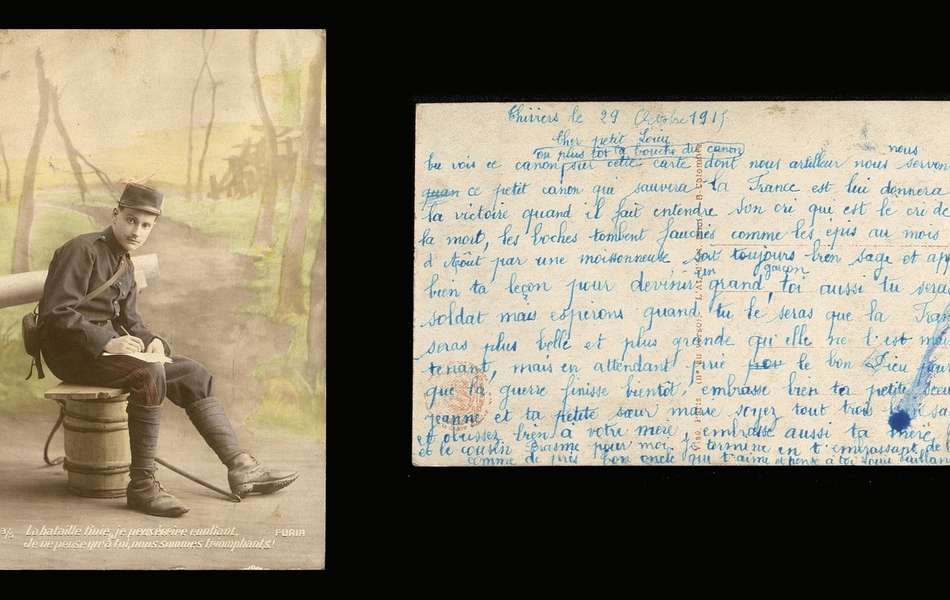 3/4 La bataille finie, je peux écrire confiant,
Je ne pense qu'à toi, nous sommes triomphants!
FURIA
Thiviers le 29 Octobre 1915
Cher petit Louis
ou plus tot la bouche du canon
nous
tu vois ce canon sur cette carte dont nous artilleur nous servon
quan ce petit canon qui sauvera la France est lui donnera
la victoire quand il fait entendre son cri qui est le cri de
la mort, les boches tombent fauchés comme les epis au mois
d Août par une moissonneuse soit toujours bien sage et app
un garçon
bien ta leçon pour devenir grand, toi aussi tu seras
soldat mais esperons quand tu le seras que la Fran
seras plus belle et plus grande qu'elle ne l'est main
tenant, mais en attendant prie le bon Dieu pour
que la guerre finisse bientot, embrasse bien ta petite sœur
jeanne et ta petite sœur marie soyez tout trois sa
et obuissez bien à votre mere, embrasse aussi ta mere
et le cousin Erasme pour moi, je termine en t'embrassant de
comme de près ton oncle qui t'aime et pense à toi Louis